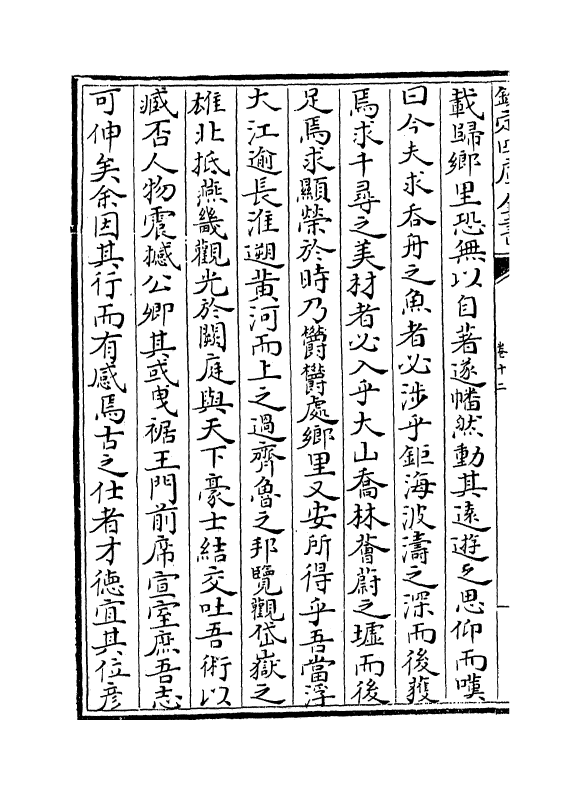 欽定四庫全書
卷十二
載歸鄉里恐無以自著遂幡然動其遠遊之思仰而嘆
曰今夫求吞舟之魚者必涉乎鉅海波濤之深而後獲
焉求千尋之美材者必入乎大山喬林薈蔚之墟而後
足焉求顯榮於時乃欝欝處鄉里又安所得乎吾當浮
大江逾長淮遡黄河而上之過齊魯之邦覽觀岱嶽之
雄北抵燕畿觀光於闕庭與天下豪士結交吐吾術以
臧否人物震撼公卿其或曵裾王門前席宣室庶吾志
可伸矣余因其行而有感焉古之仕者才徳宜其位彦